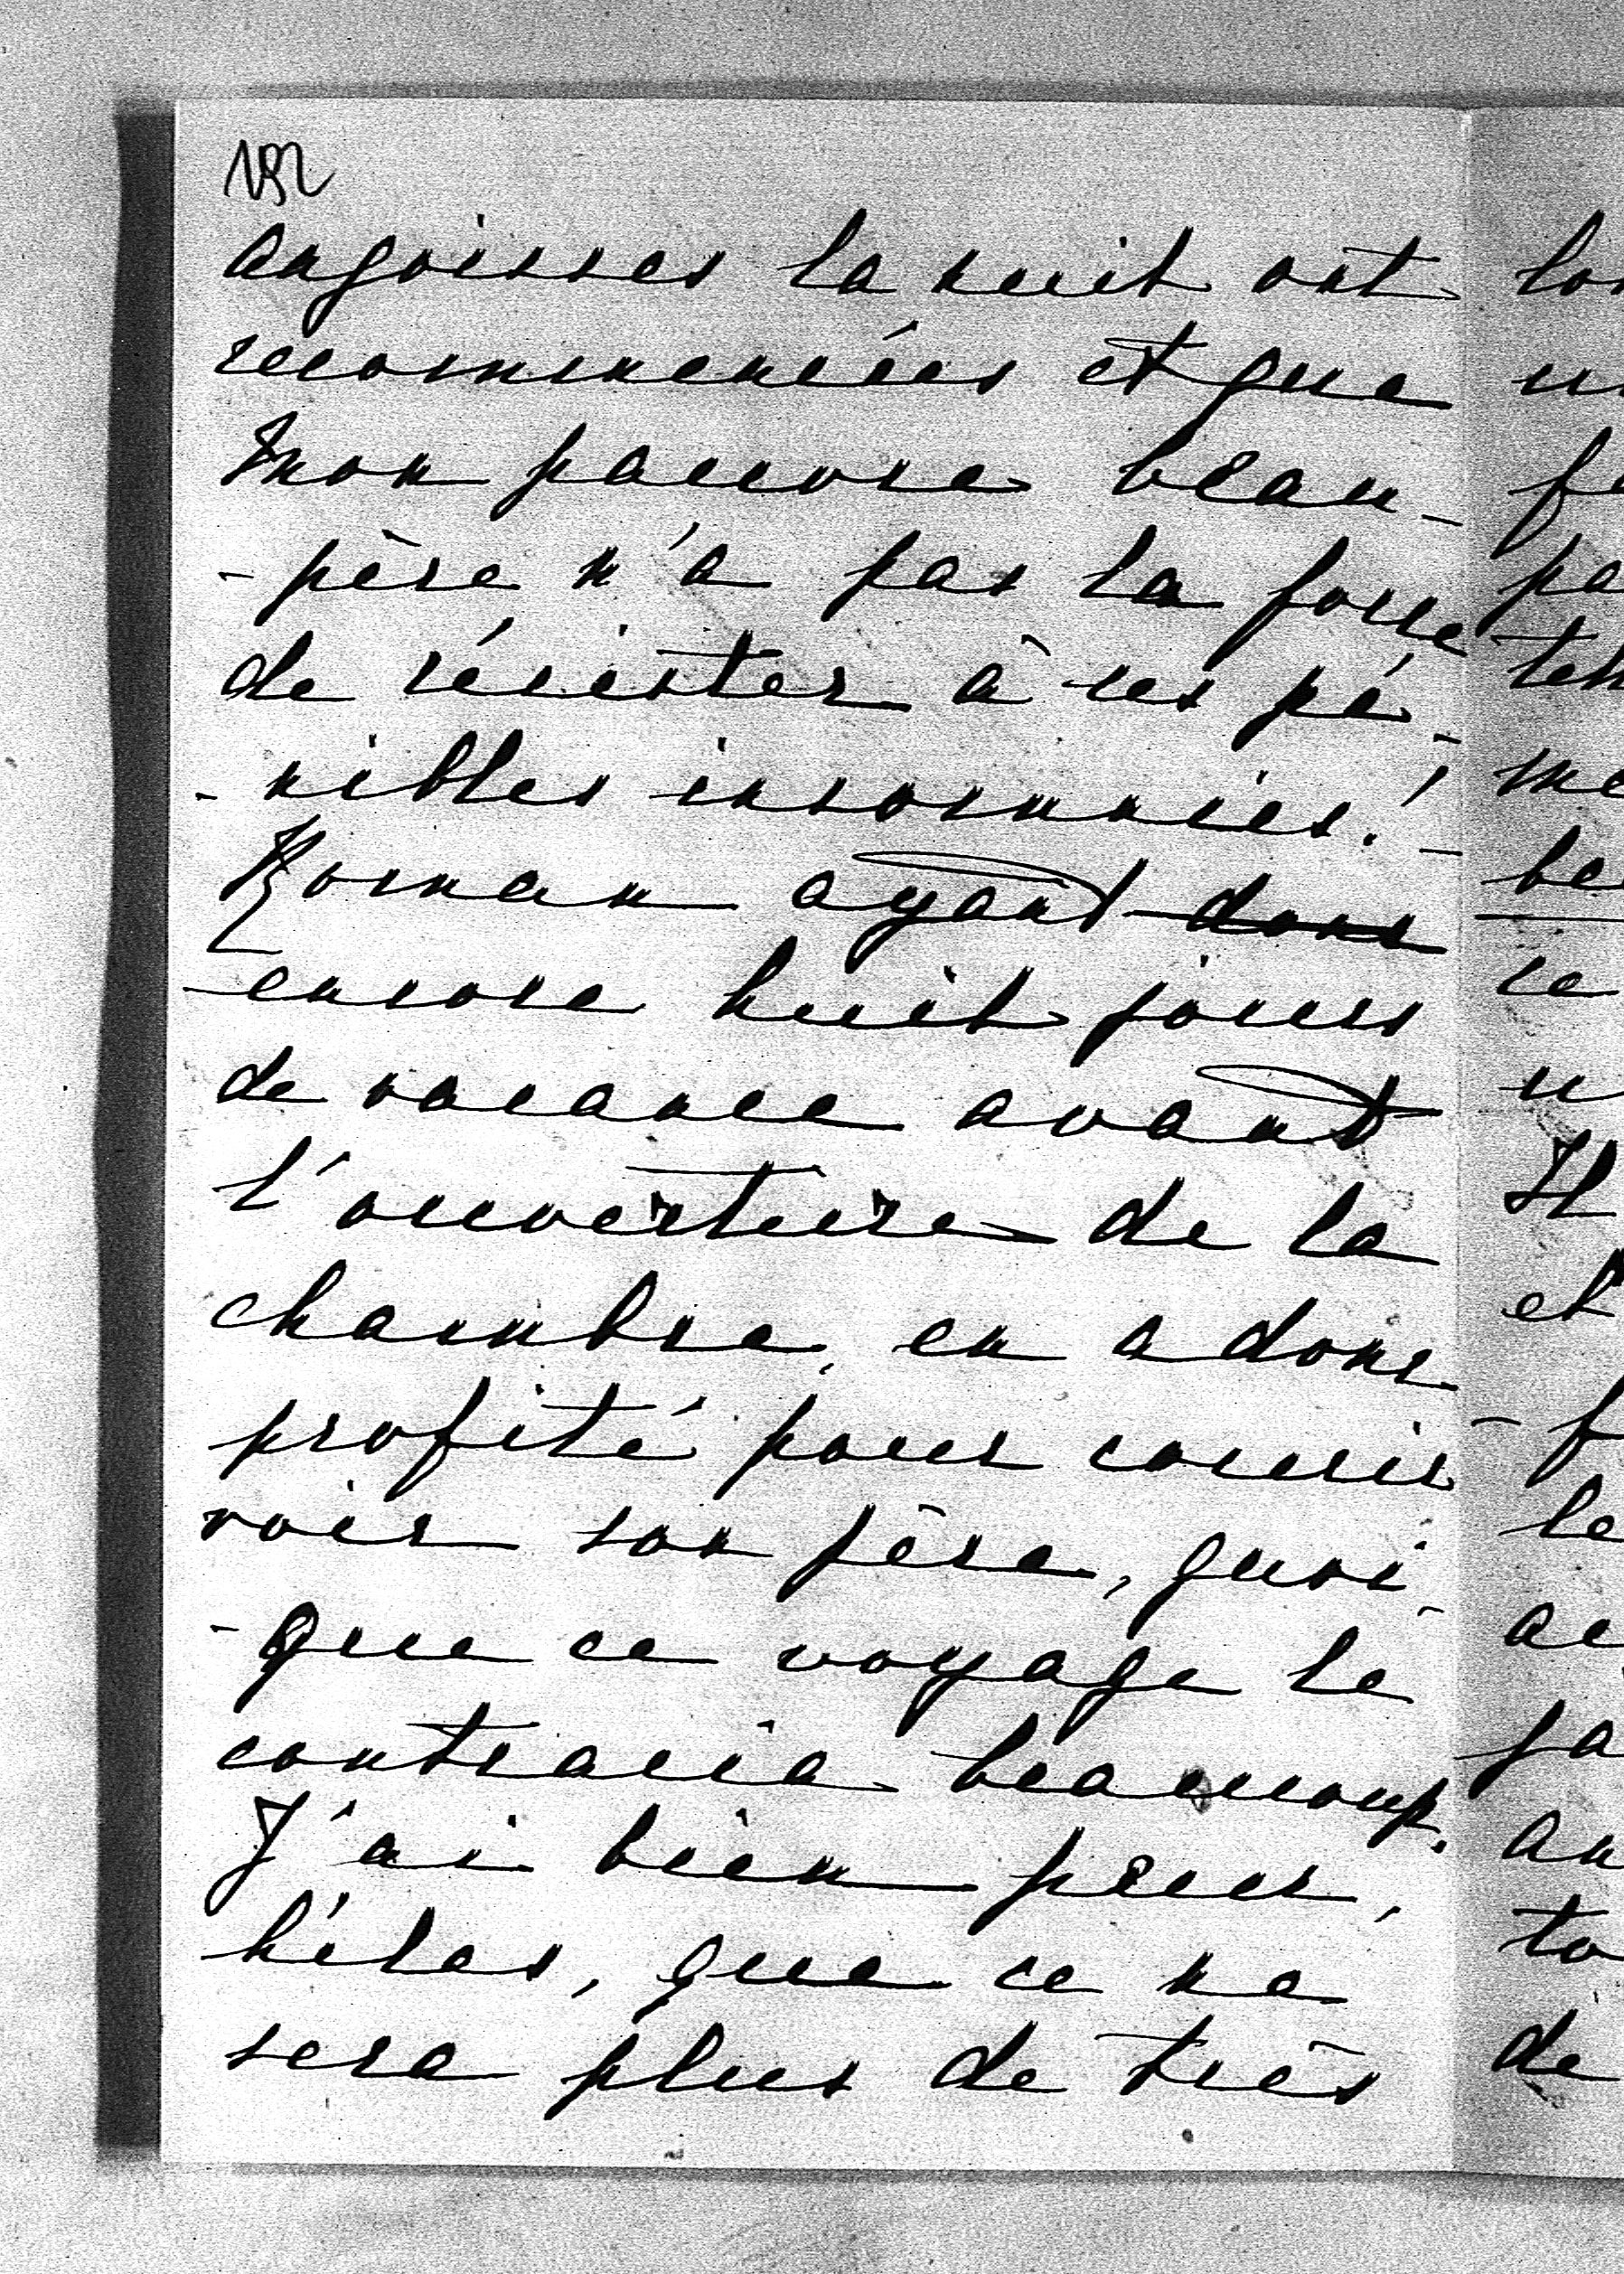 192
angoisses la nuit ont
recommencées et que
mon pauvre beau-
-père n'a pas la force
de résister à ces pé-
-nibles insomnies! -
Roman ayant donc
encore huit jours
de vacance avant
l'ouverture de la
chambre, en a donc
profité pour courir
voir son père, quoi-
-que ce voyage le
contraria beaucoup.
J'ai bien peur,
hélas, que ce ne
sera plus de très